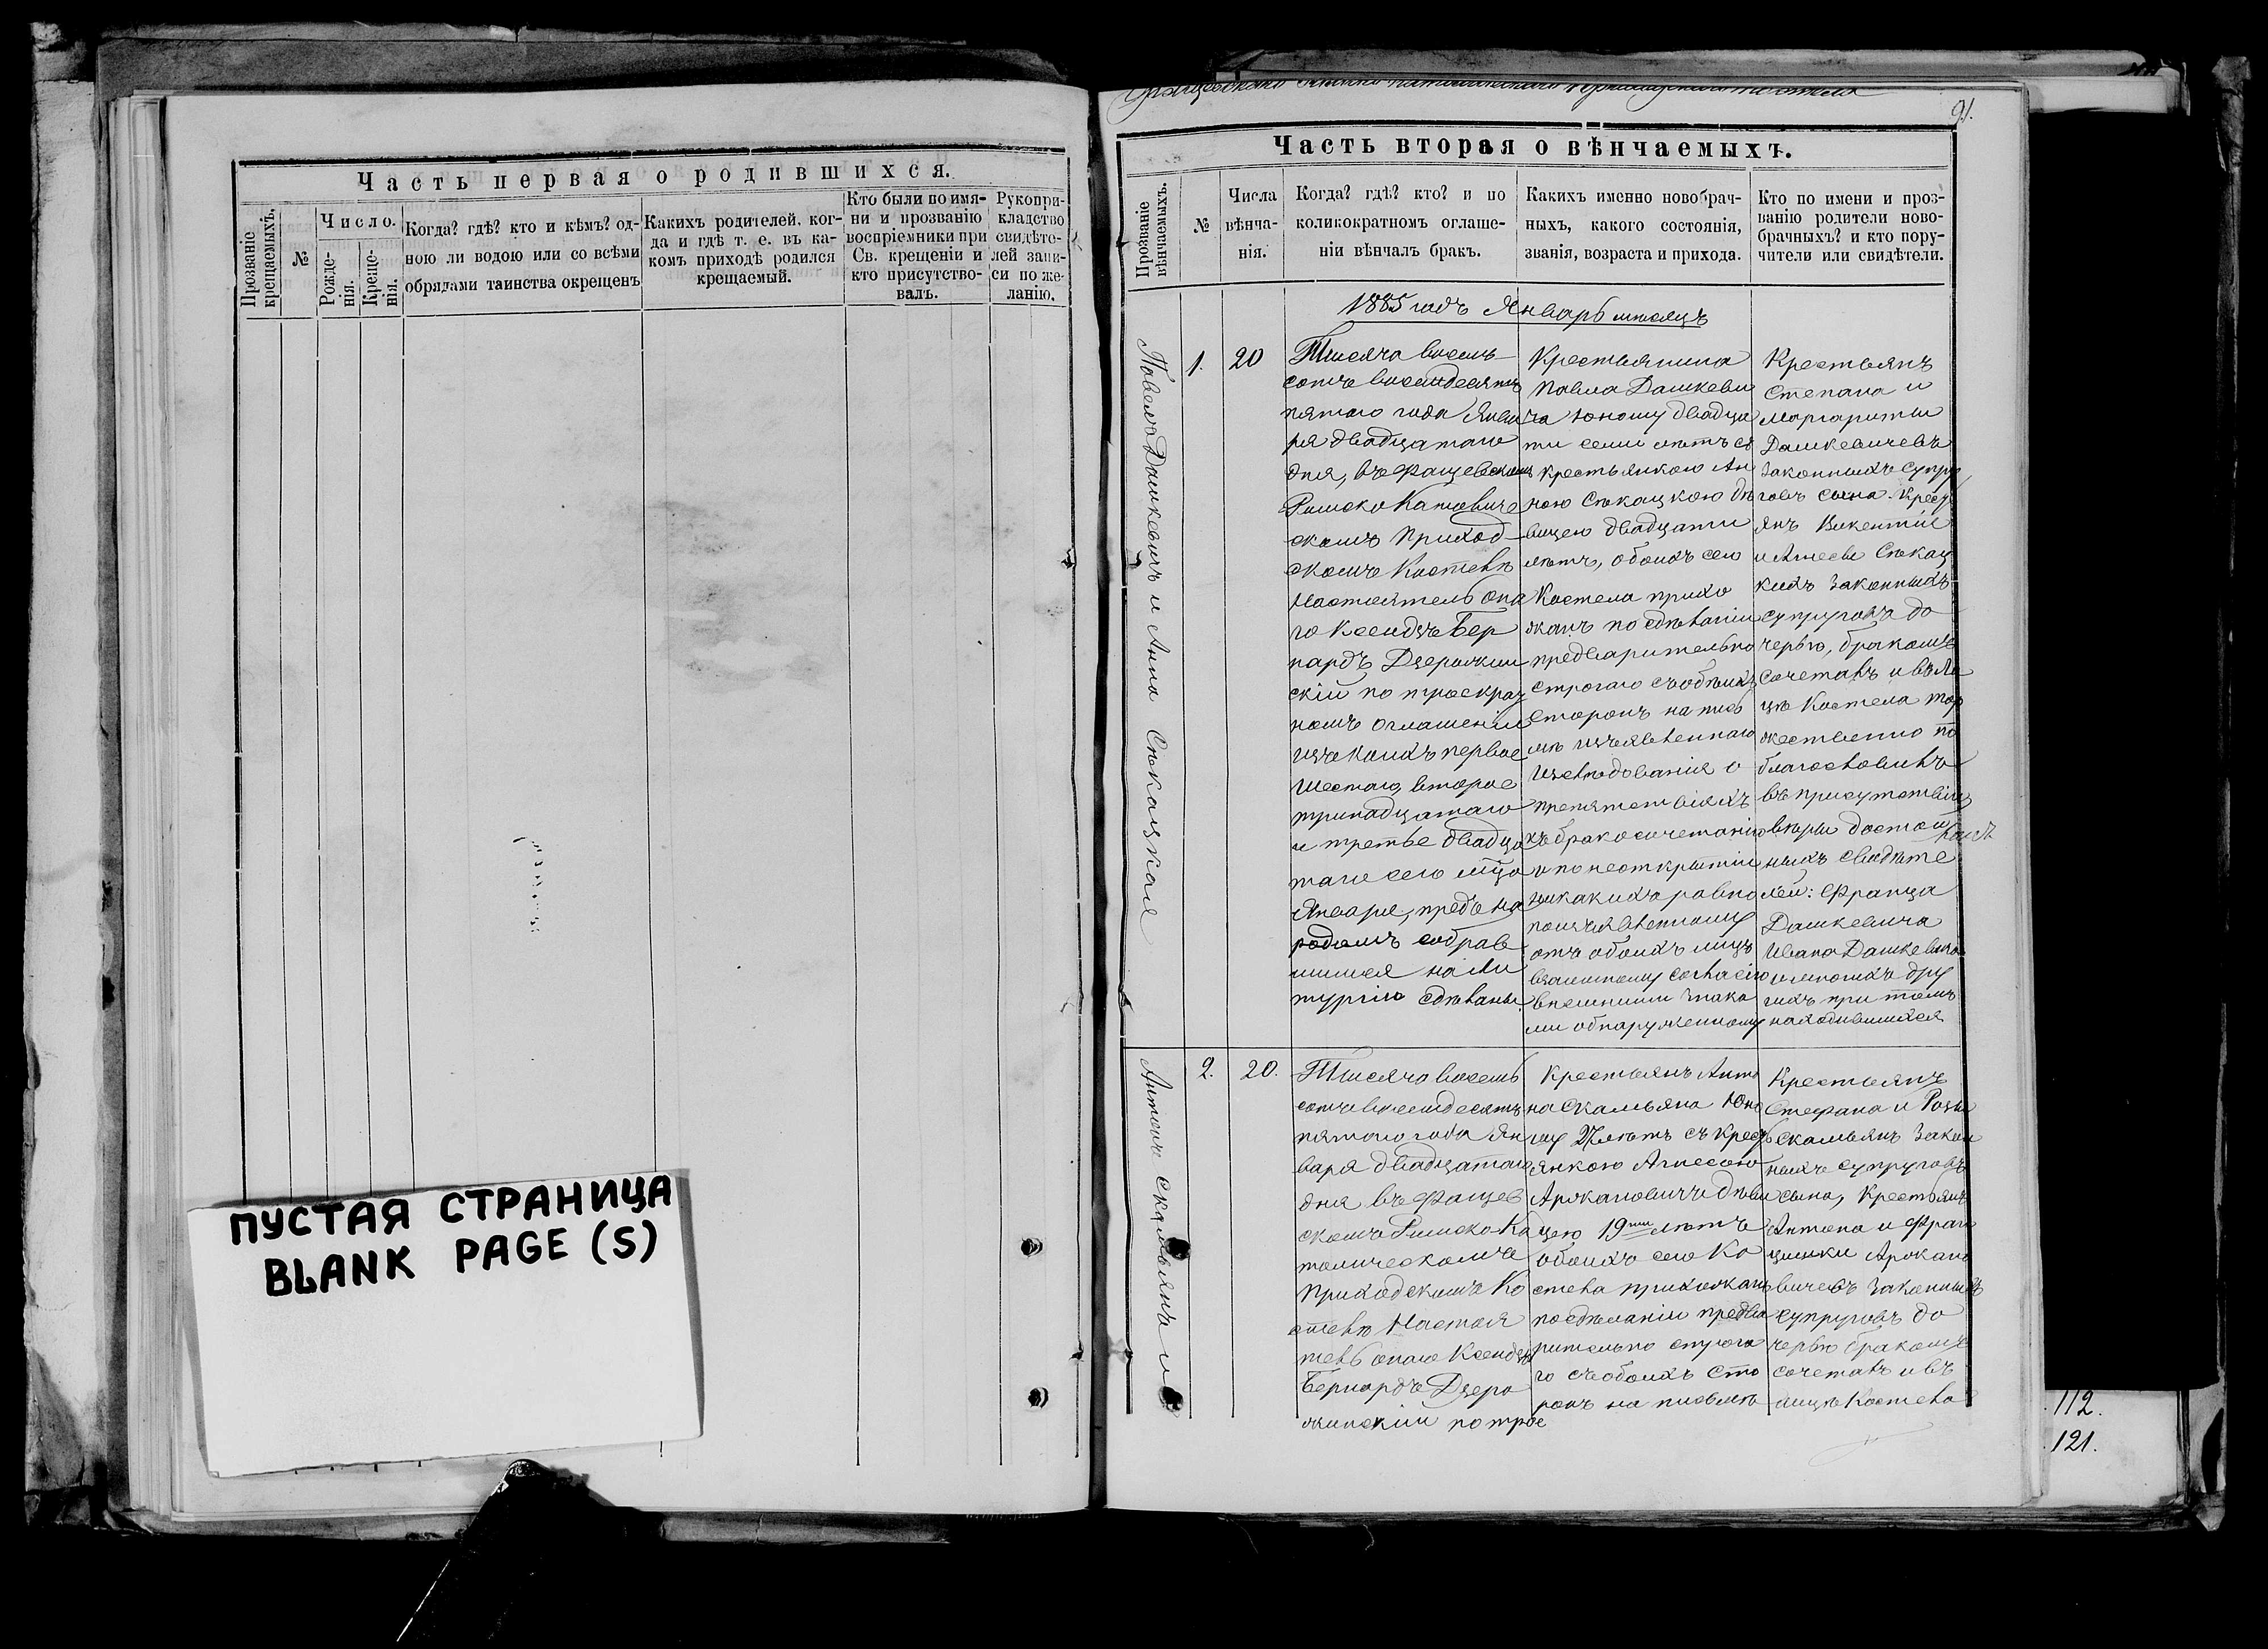 Часть первая о родившихся.
Прозваніе крещаемыхъ.
№
Число.
Рожде-
нія.
Креще-
нія.
Когда? гдѣ? кто и кѣмъ? од-
ною ли водою или со всѣми
обрядами таинства окрещенъ
Какихъ родителей, ког-
да и гдѣ т. е. въ ка-
комъ приходѣ родился
крещаемый.
Кто были по имя-
ни и прозванію
воспріемники при
Св. крещеніи и
кто присутство-
валъ.
Рукопри-
кладство
свидѣте-
лей запи-
си по же-
ланію.
ПУСТАЯ СТРАНИЦА
BLANK PAGE (S)
91.
Часть вторая о вѣнчаемыхъ.
Прозваніе
вѣнчаемыхъ.
№
Числа
вѣнча-
нія.
Когда? гдѣ? кто? и по
коликократномъ оглаше-
ніи вѣнчалъ бракъ.
Какихъ именно новобрач-
ныхъ, какого состоянія,
званія, возраста и прихода.
Кто по имени и проз-
ванію родители ново-
брачныхъ? и кто пору-
чители или свидѣтели.
1885 годъ Январь мѣсяцъ
Павелъ Дашкевичъ и Анна Сѣкацкая
1.
20
Тысяча восемь
сотъ восемдесятъ
пятаго года Янва
ря двадцатаго
дня, въ Фащевскомъ
Римско Католиче
скомъ Приход
скомъ Костелѣ
Настоятель она
го Ксендзъ Бер
нардъ Дзержин
скій по троекрат
номъ оглашеніи
изъ коихъ первое
шестаго, второе
тринадцатаго
и третье двадца
таго сего мца
Января, предъ на
родомъ собрав
шимся на Ли
тургію сдѣланы.
Крестьянина
Павла Дашкеви
ча юношу двадца
ти семи лѣтъ съ
крестьянкою Ан
ною Сѣкацкою дѣ
вицею двадцати
лѣтъ, обоихъ сего
Костела прихо
жанъ по сдѣланіи
предварительно
строгаго съ обѣихъ
сторонъ на пись
мѣ изъявленнаго
изслѣдованія о
препятствіяхъ
къ бракосочетанію
и по неоткрытіи
никакихъ равно
по изъявленному
отъ обоихъ лицъ
взаимному согласію
внешними знака
ми обнаруженному
Крестьянъ
Степана и
Маргариты
Дашкевичевъ
законныхъ супру
говъ сына. Кресть
янъ Викентія
и Агнесы Сѣкац
кихъ законныхъ
супруговъ до
черью, бракомъ
сочеталъ и въ ли
цѣ Костела тор
жественно по
благословилъ
въ присутствіи
вѣры достой
ныхъ свидѣте
лей: Франца
Дашкевича
Ивана Дашкевича
и многихъ дру
гихъ при томъ
находившихся
Антонъ Скамьянъ и
2.
20.
Тысяча восемь
сотъ восемдесятъ
пятаго года Ян
варя двадцатаго
дня въ Фащев
скомъ Римско-Ка
толическомъ
Приходскомъ Ко
стелѣ Настоя
тель онаго Ксендзъ
Бернардъ Дзер
жинскій по трое
Крестьянъ Анто
на Скамьяна юно
шу 27 лѣтъ съ крестъ
янкою Агнесою
Арокановичъ дѣви
цею 19ти лѣтъ
обоихъ сего Ко
стела прихожанъ
по сдѣланіи предва
рительно строга
го съ обоихъ сто
ронъ на письмѣ
Крестьянъ
Стефана и Розы
Скамьянъ закон
ныхъ супруговъ
сына, Крестьянъ
Антона и Фран
цишки Арокано
вичевъ законныхъ
супруговъ до
черью бракомъ
сочеталъ и въ
лицѣ Костела
112.
121.